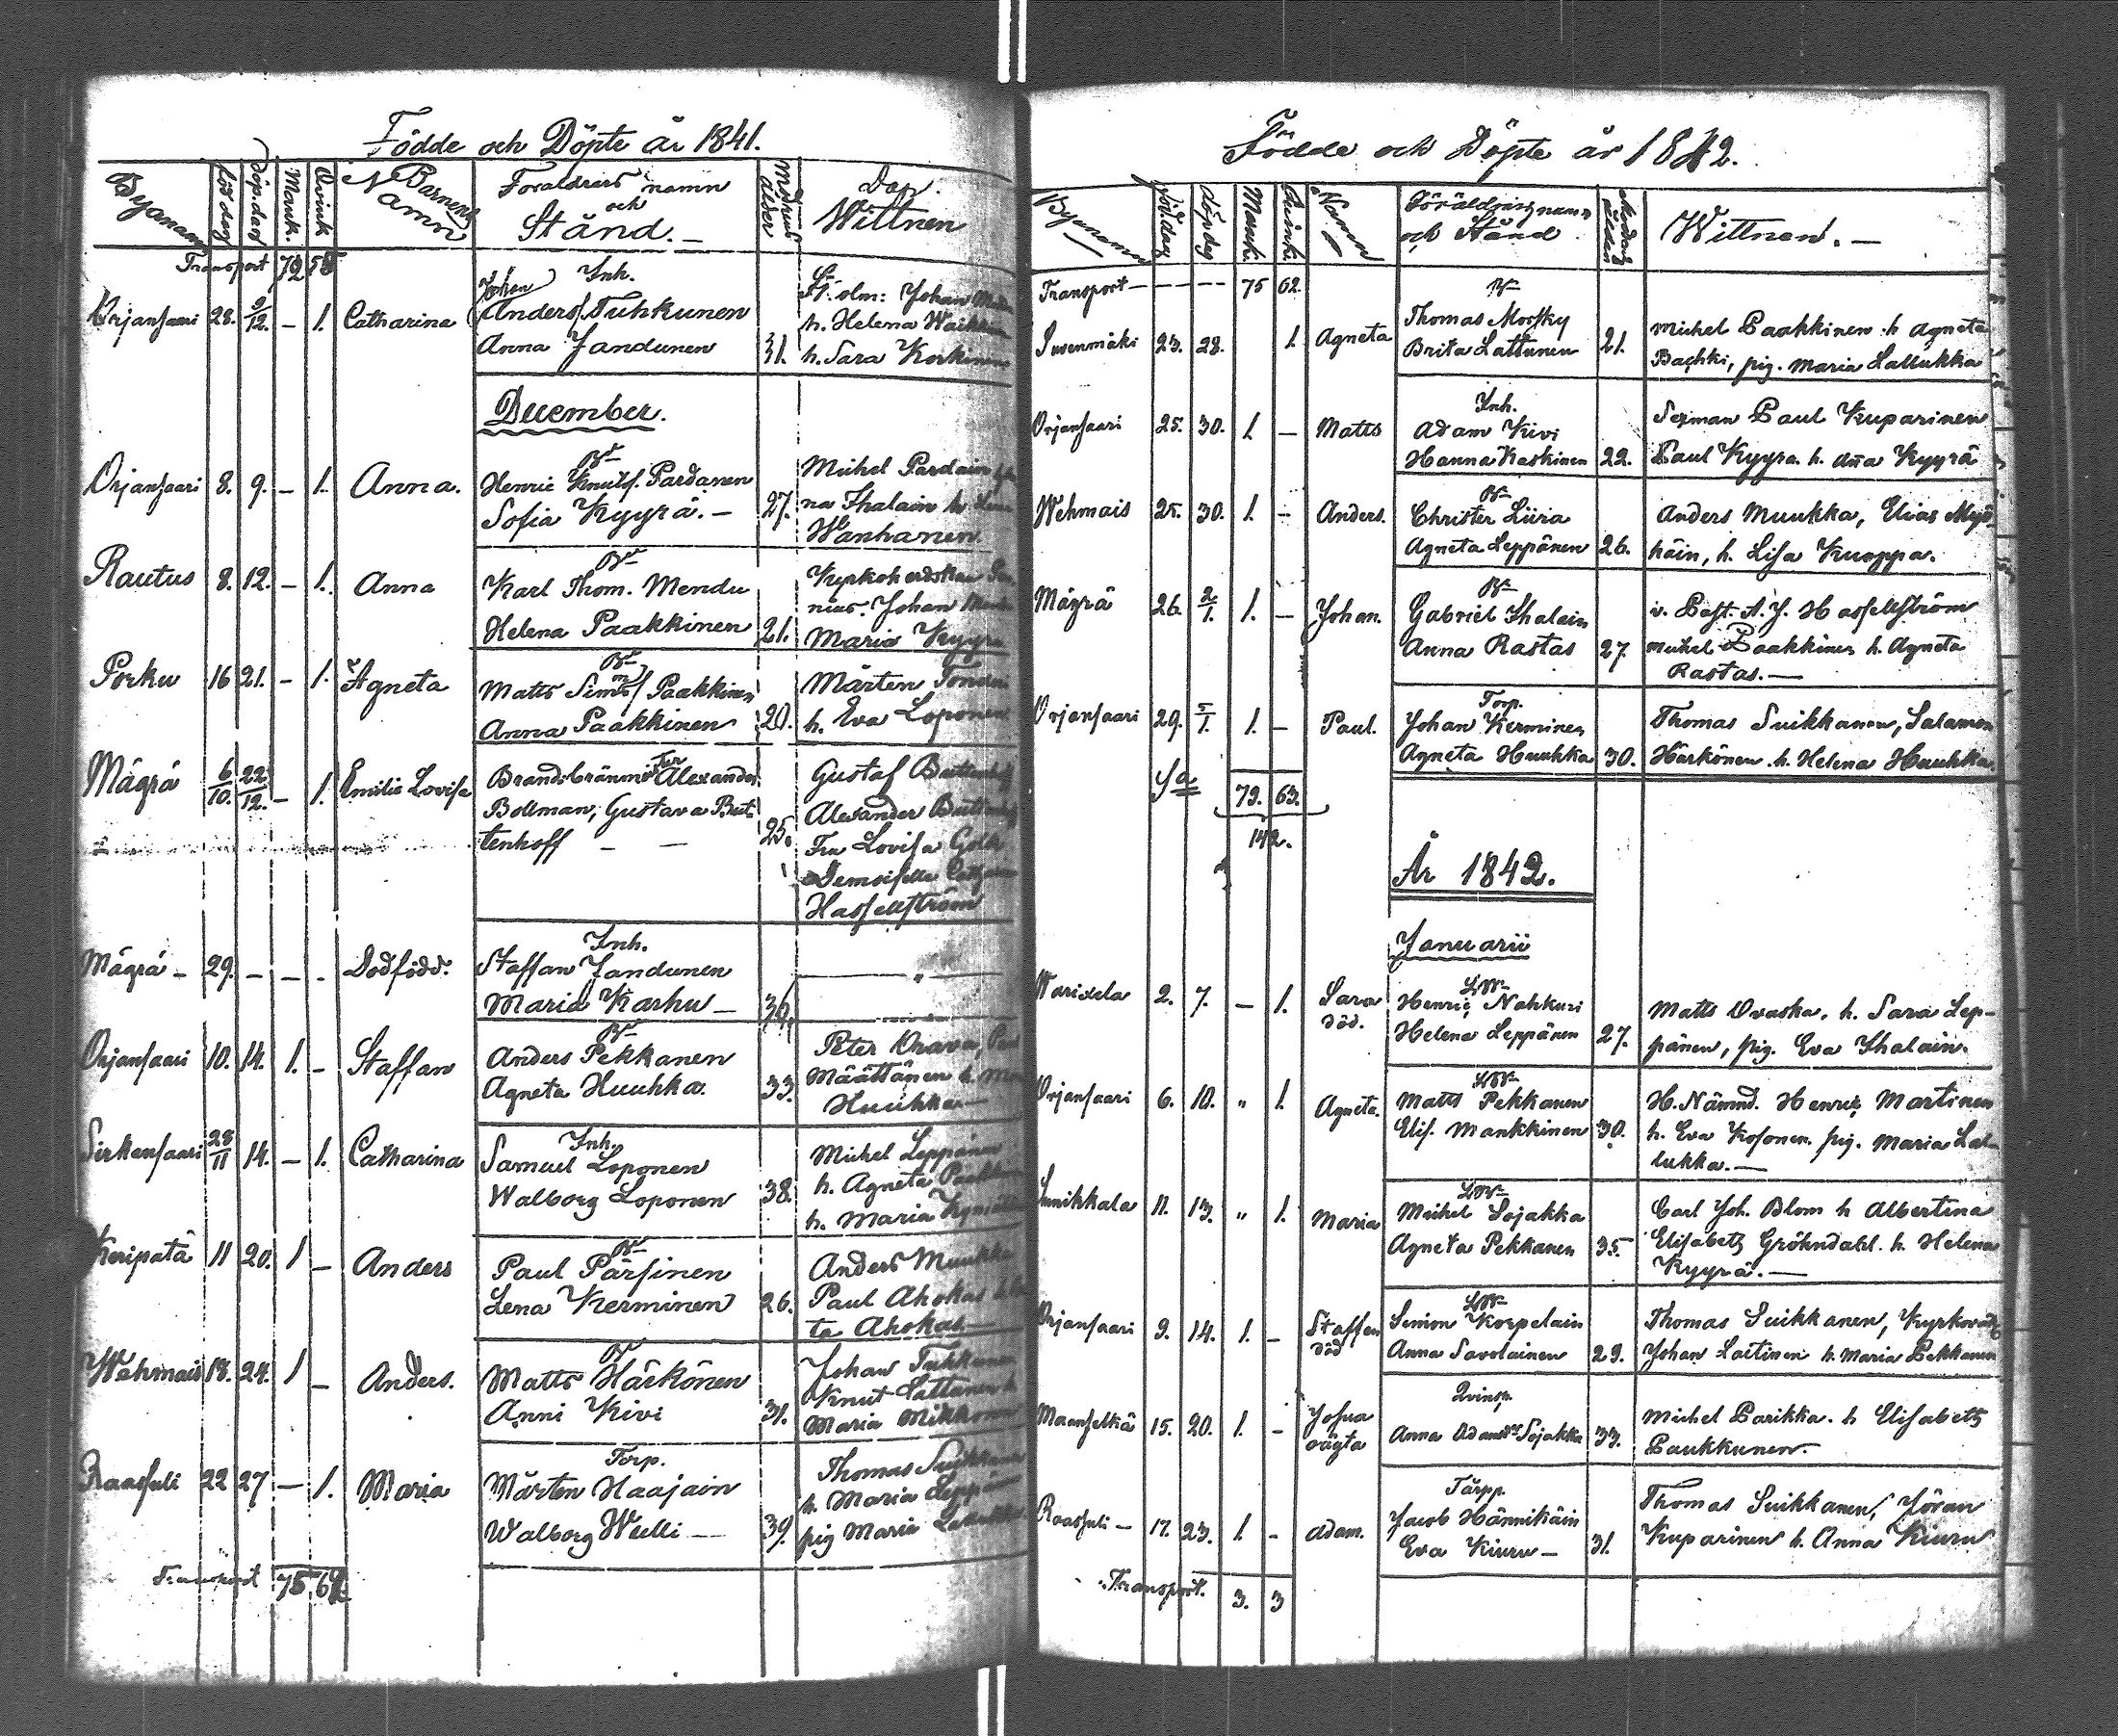 Födde och Döpte år 1841.
Byanamn
född dag
döp. dag
Mank.
Qvink
Barnens Namn
Foraldrars namn
och
Stånd. —
Modrens ålder
Dop.
Wittnen
Transport 72 58
Inh.
Johan
Orjansaari 28. 9/12. — 1. Catharina Anders Tuhkunen
Anna Jandunen 31.
St. olm: Johan
h. Helena
h. Sara
December.
Bd
Orjansaari 8. 9. — 1. Anna. Henric Knutss. Pardanen
Sofia Kyyrä. — 27.
Michel Pardain
na Ihalain h.
Wanhanen
Bd
Rautus 8. 12. — 1. Anna Karl Thom. Mendu
Helena Paakkinen 21.
Johan
Maria Kyyrä
Bd
Porku 16 21. — 1. Agneta Matts Sims Paakkinen
Anna Paakkinen 20.
Mårten
h. Eva Loponen
Mägrä 6/10. 22/12. — 1. Emilie Lovisa Alexander
Bollman, Gustava But
tenhoff — — 25.
Gustaf
Alexander
Fru Lovisa
Demoiselle
Hassellström
Inh.
Mägrä — 29. — — - Dödfödd. Staffan Jandunen
Maria Karhu —
Bd
Orjansaari 10. 14. 1. — Staffan Anders Pekkanen
Agneta Huuhka. 33.
Peter Orava,
Määttänen h.
Huuhka —
Inh.
Sirkensaari 28/11 14. — 1. Catharina Samuel Loponen
Walborg Loponen 38.
Michel Leppänen
h. Agneta
h. Maria
Bd
Keripatä 11 20. 1 — Anders Paul Pärsinen
Lena Kerminen 26.
Anders Muukka
Paul Ahokas
ta Ahokas —
Bd
Wehmais 18. 24. 1 — Anders. Matts Härkönen
Anni Kivi 31.
Johan Tuhkunen
Knut Lattunen h.
Maria Mikkonen
Torp.
Raasuli 22 27 — 1. Maria Mårten Haajain
Walborg Wulli — 39.
Thomas Suikkanen
h. Maria Leppänen
pig Maria
Transport 75 62
Födde och Döpte år 1842.
Byanamn
född dag
döpdag
Mank.
Qvink.
Namn
Föräldrars namn
och Stånd.
Modrens ålder
Wittnen. —
Transport — - - - - 75 62.
Bd
Susenmäki 23. 28. 1. Agneta Thomas Morsky
Brita Lattunen 21.
Michel Paakkinen h Agneta
Bachki, pig. Maria Lallukka
Inh.
Orjansaari 25. 30. 1. — Matts Adam Kivi
Hanna Kaskinen 22.
Sexman Paul Kuparinen
Paul Kyyrä. h. Anna Kyyrä
Bd
Wehmais 25. 30. 1. — Anders. Christer Liira
Agneta Leppänen 26.
Anders Muukka, Elias Myö
häin, h. Lisa Kuoppa.
Bd
Mägrä 26. 2/1. 1. — Johan. Gabriel Ihalain
Anna Rastas 27.
v. Past. A. J. Hassellström
Michel Paakkinen h. Agneta
Rastas. —
Torp.
Orjansaari 29. 5/1. 1. — Paul. Johan Kerminen
Agneta Huuhka 30.
Thomas Suikkanen, Salamon
Härkönen h. Helena Huuhka.
Sa 79. 63.
142.
År 1842.
Januarii
Warixela 2. 7. — 1. Sara
död.
Henric Nahkuri
Helena Leppänen 27.
Matts Ovaska, h. Sara Lep-
pänen, pig. Eva Ihalain.
Orjansaari 6. 10. " 1. Agneta. Matts Pekkanen
Elis. Mankkinen 30.
H. Nämnd. Henric Martinen
h. Eva Kosonen. pig. Maria Lal
lukka. —
Sunikkala 11. 13. " 1. Maria Michel Sojakka
Agneta Pekkanen 35.
Carl Joh. Blom h Albertina
Elisabeth Gröhndahl. h. Helena
Kyyrä. —
Orjansaari 9. 14. 1. — Staffan
död
Simon Korpelain
Anna Savolainen 29.
Thomas Suikkanen,
Johan Laitinen h. Maria Pekkanen
Qvinsp.
Maanselkä 15. 20. 1. — Josua
oägta
Anna Adamsdr Sojakka 33.
Michel Parikka. h Elisabeth
Paukkunen —
Tårpp.
Raasuli — 17. 23. 1. — Adam. Jacob Hännikäin
Eva Kiuru — 31.
Thomas Suikkanen, Jöran
Kuparinen h. Anna Kiuru
Transport. 3. 3